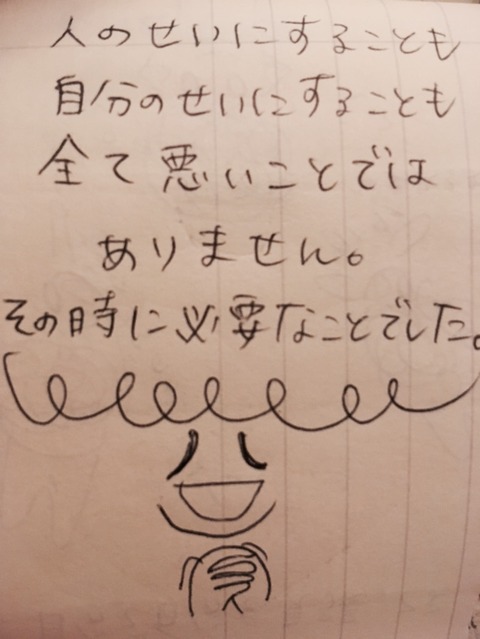 人のせいにすることも
自分のせいにすることも
全て悪いことでは
ありません。
その時に必要なことでした。